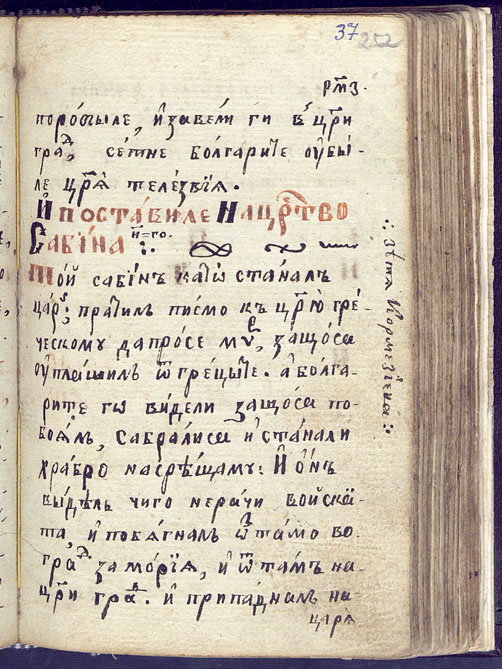 37
252
рмз.
поробиле, и завели ги в̾ цр҃и
гра́д, се́тне болгарите оуби́-
ле цр҃ѧ телезвїѧ.
И поста́виле На црⷭ҇тво
Саби́на и҃=го.
Той сабинъ като̀ станалъ
царъ, пратилъ писмо къ цр҃ю грѐ-
ческому да просе ми́р, защо́са
оуплашилъ ѿ гре́цыте. а болга-
рите го ви́дели защо́са по-
боѧлъ, сабра́лиса и ста́нали
храбро насрѣщаму: И о́нъ
ви́дѣлъ чи го нера́чи войскѫ-
та, и побѧгналъ ѿта́мо во-
гра́д за мо́рїѧ, и ѿта́мъ на-
цр҃и гра́д. и припа́дналъ на-
царѧ
зѣтѧ Кормезїева